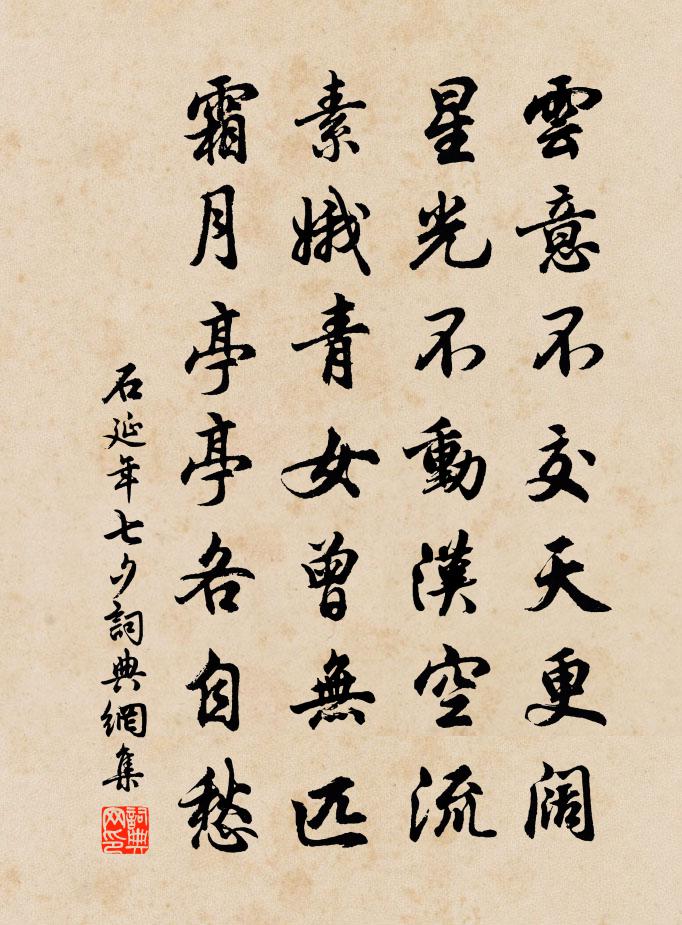 雲意不交天更闊
星光不動漢空流
素娥青女曾無匹
霜月亭亭各自愁
石延年七夕詞典網集
詞典網印